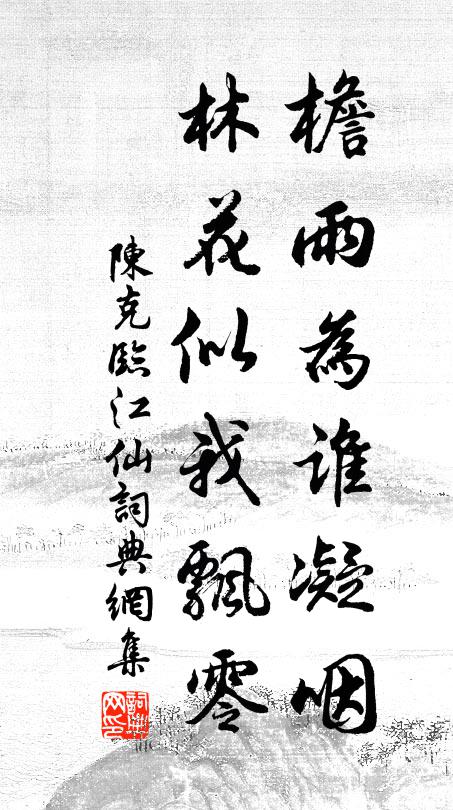 檐雨為誰凝咽
林花似我飄零
陳克臨江仙詞典網集